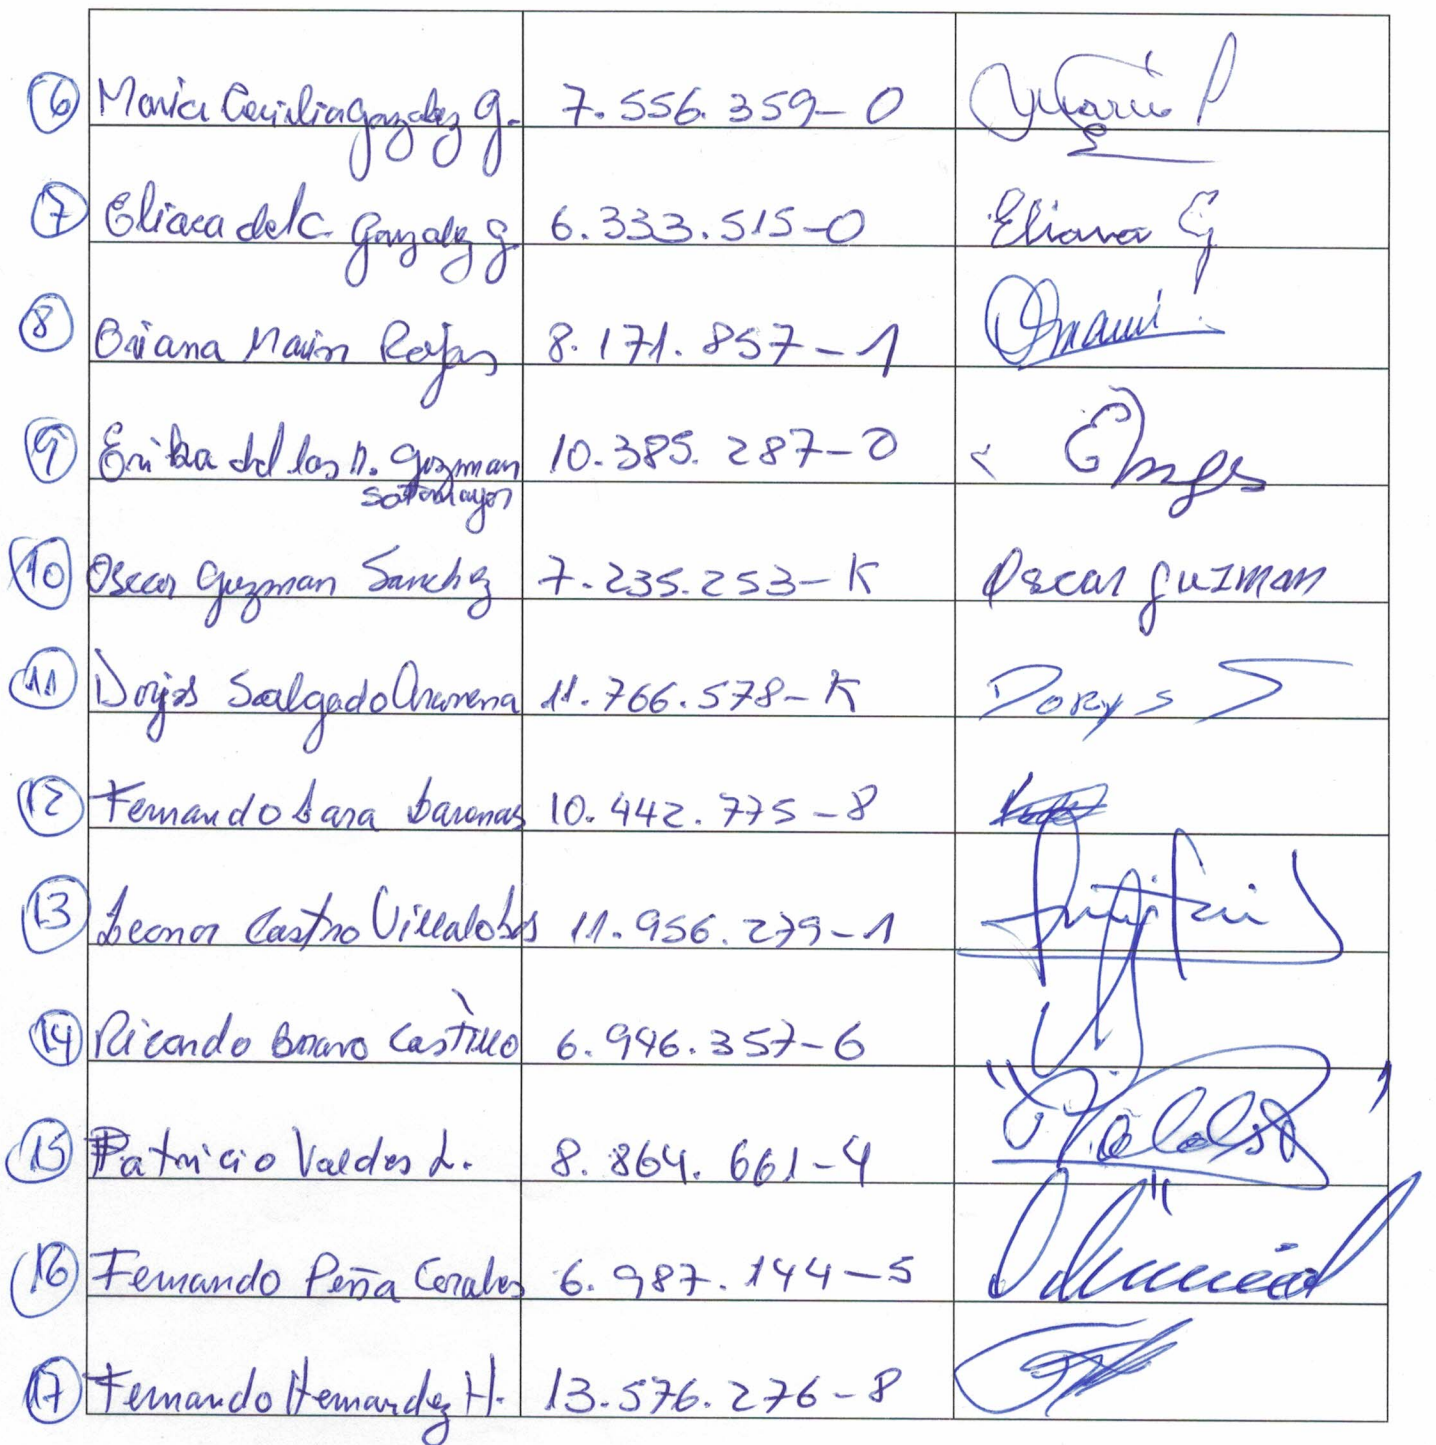 6 Maria Cecilia Gonzalez G. 7.556.359-0 Maria
7 Eliana del C. Gonzalez G. 6.333.515-0 Eliana G
8 Oriana Marin Rojas 8.171.857-1
9 Erika del las N. Guzman 10.385.287-0
Sotomayor
10 Oscar Guzman Sanchez 7.235.253-K Oscar Guzman
11 Dorys Salgado Aravena 11.766.578-K Dorys S
12 Fernando Lara Barenas 10.442.775-8
13 Leonor Castro Villalobos 11.956.279-1
14 Ricardo Bravo Castillo 6.946.357-6
15 Patricio Valdes L. 8.864.661-4
16 Fernando Peña Corales 6.987.144-5
17 Fernando Hernandez H. 13.576.276-8